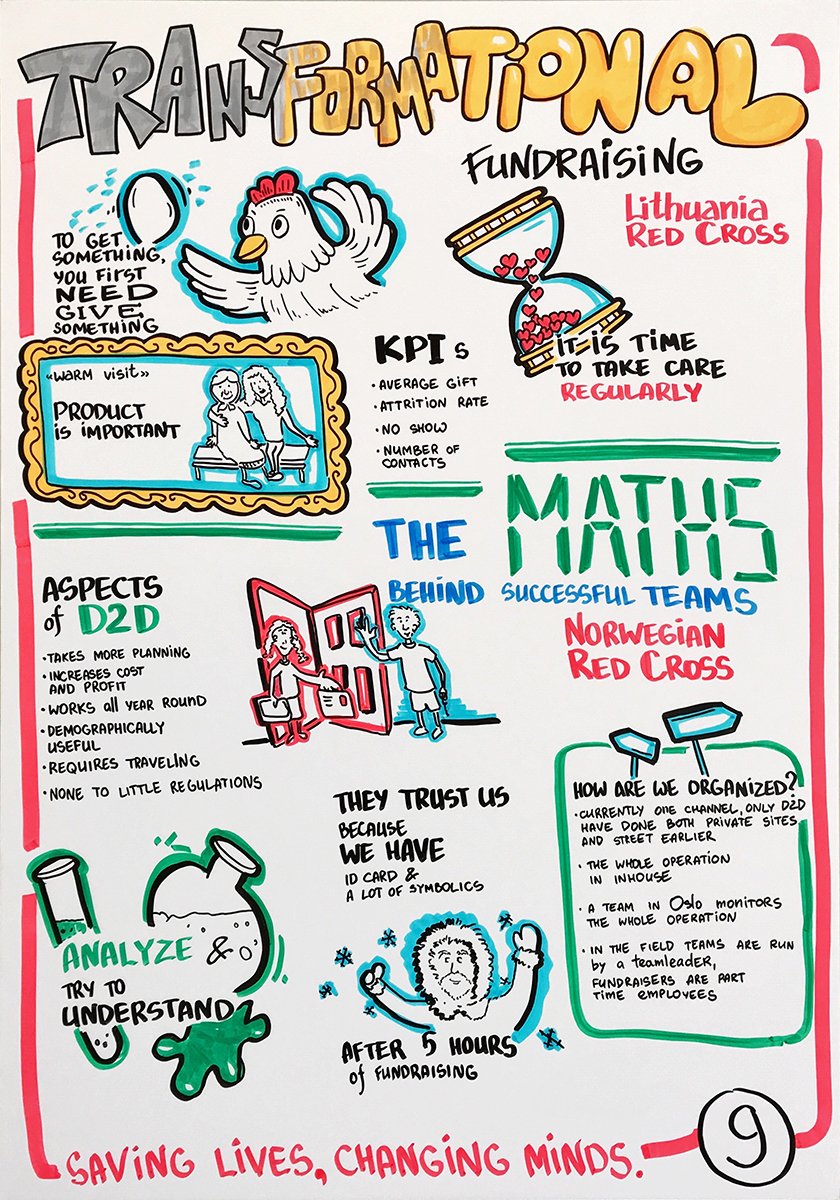 TRANSFORMATIONAL
FUNDRAISING
Lithuania
RED CROSS
TO GET
SOMETHING,
YOU FIRST
NEED
GIVE
SOMETHING
IT IS TIME
TO TAKE CARE
REGULARLY
«WARM VISIT»
PRODUCT
IS IMPORTANT
KPI s
• AVERAGE GIFT
• ATTRITION RATE
• NO SHOW
• NUMBER OF
CONTACTS
THE
MATHS
BEHIND SUCCESSFUL TEAMS
NORWEGIAN
RED CROSS
ASPECTS
of D2D
• TAKES MORE PLANNING
• INCREASES COST
AND PROFIT
• WORKS all YEAR ROUND
• DEMOGRAPHICALLY
USEFUL
• REQUIRES TRAVELING
• NONE TO LITTLE REGULATIONS
THEY TRUST US
BECAUSE
WE HAVE
ID CARD &
A LOT OF SYMBOLICS
HOW ARE WE ORGANIZED?
• CURRENTLY ONE CHANNEL, ONLY D2D
HAVE DONE BOTH PRIVATE SITES
AND STREET EARLIER
• THE WHOLE OPERATION
IN INHOUSE
• A TEAM IN Oslo MONITORS
THE WHOLE OPERATION
• IN THE FIELD TEAMS ARE RUN
by a teamleader,
FUNDRAISERS ARE PART
TIME EMPLOYEES
ANALYZE &
TRY TO
UNDERSTAND
AFTER 5 HOURS
of FUNDRAISING
SAVING LIVES, CHANGING MINDS.
9